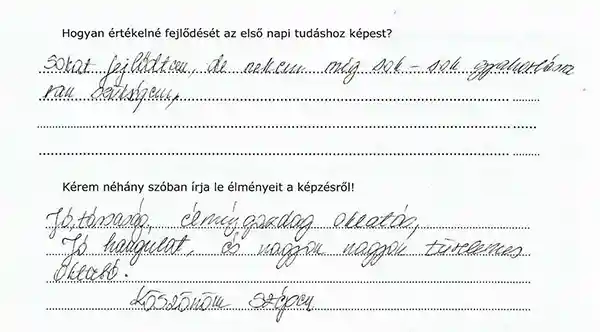 Hogyan értékelné fejlődését az első napi tudáshoz képest?
Sokat fejlődtem, de nekem még sok-sok gyakorlásra
van szükségem,
Kérem néhány szóban írja le élményeit a képzésről!
Jó társaság, élménygazdag oktatás,
Jó hangulat, és nagyon nagyon türelmes
oktató.
Köszönöm szépen